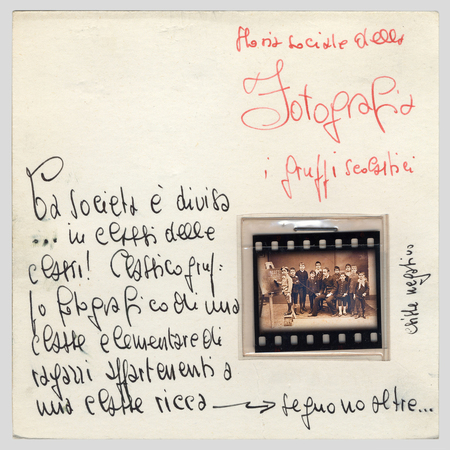 storia sociale della
Fotografia
i gruppi scolastici
La società è divisa
... in classi delle
classi! Classico grup-
po fotografico di una
classe elementare di
ragazzi appartenenti a
una classe ricca → seguono altre...
negativo